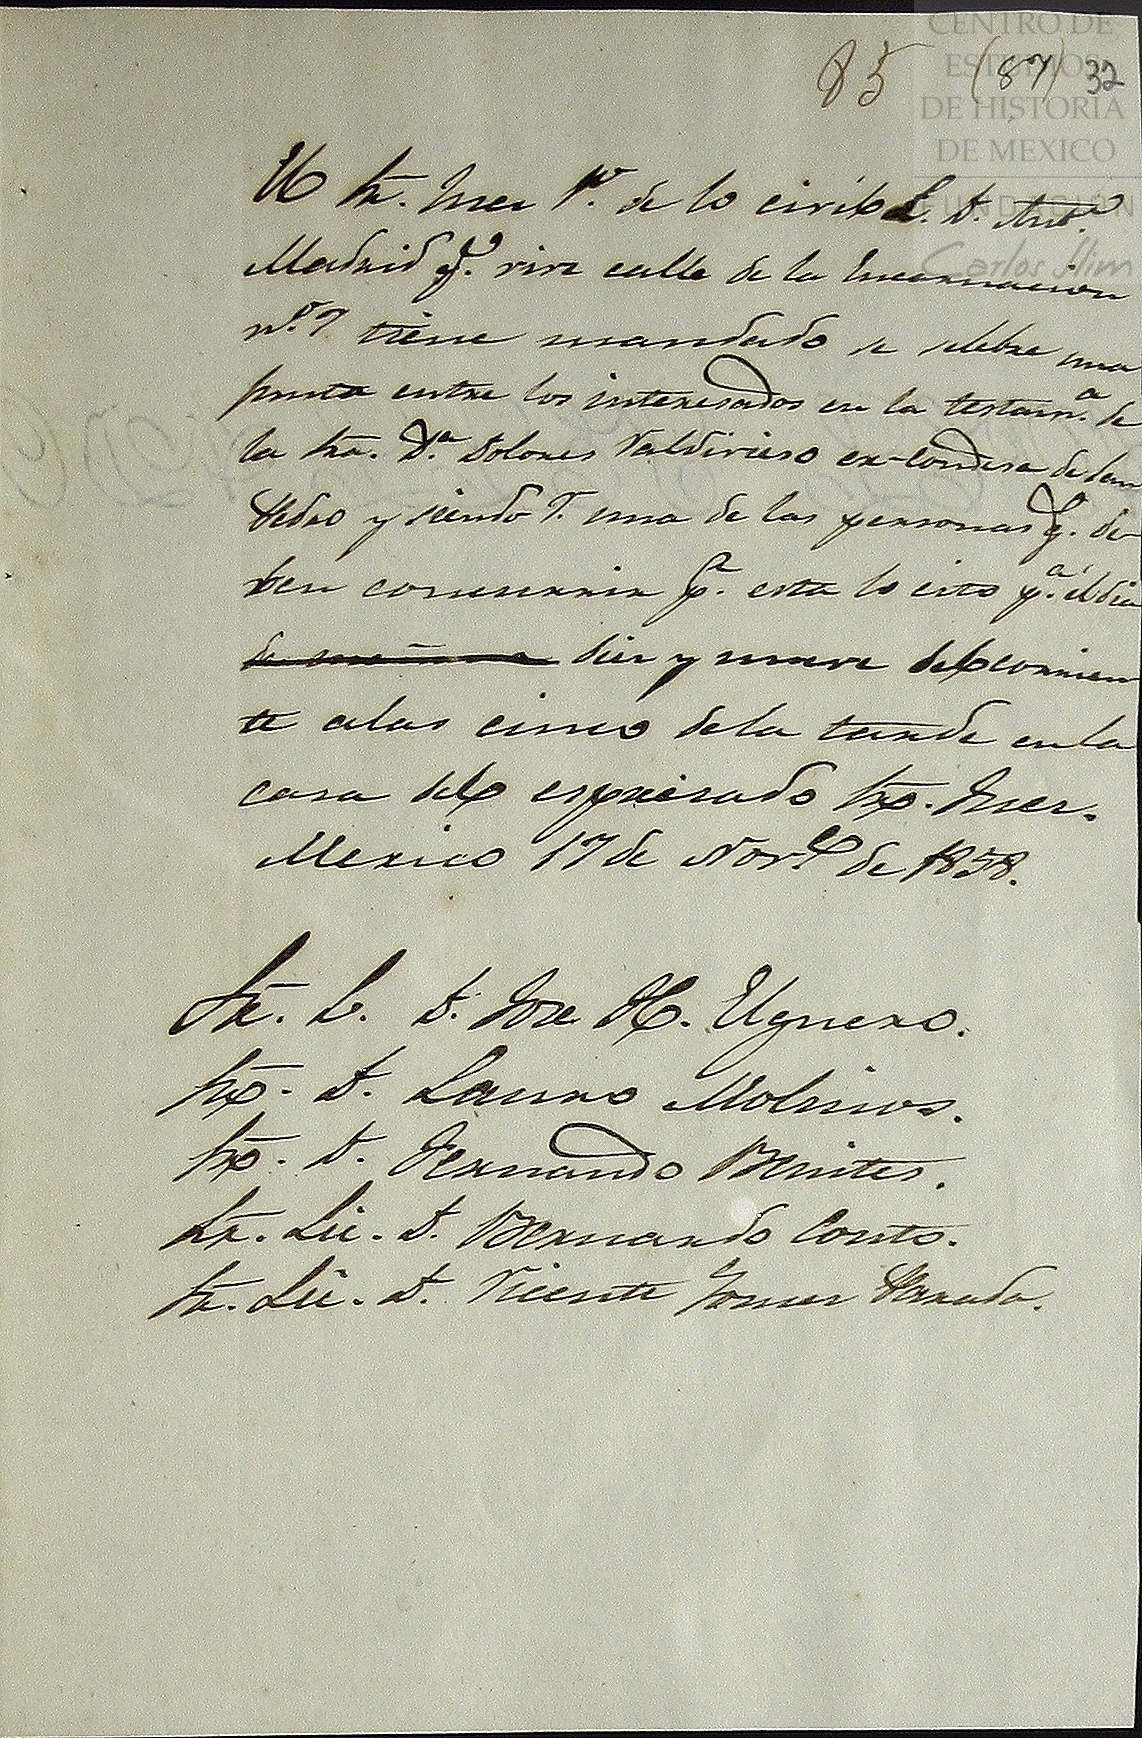 85 (87) 32
CENTRO DE
ESTUDIOS
DE HISTORIA
DE MEXICO
FUNDACIÓN
Carlos Slim
El Sr. Juez 1º. de lo civil L. D. Antº.
Madrid q.e vive calle de la Encarnacion
nº. 7 tiene mandado se selebre una
junta entre los interesados en la testam.a de
la Sra. D.a Dolores Valdivieso ex-condesa de San
Pedro y siendo V. una de las personas q.e de-
ben concurrir p.a esta lo cito p.a el dia
de mañana dies y nueve del corrien
te a las cinco de la tarde en la
casa del espresado Sr. Juez.
Mexico 17 de Nov.e de 1858.
Sr. L. D. Jose M. Uguero.
Sr. D. Lauro Molinos.
Sr. D. Fernando Benites.
Sr. Lic. D. Bernardo Couto.
Sr. Lic. D. Vicente Gomes Parada.